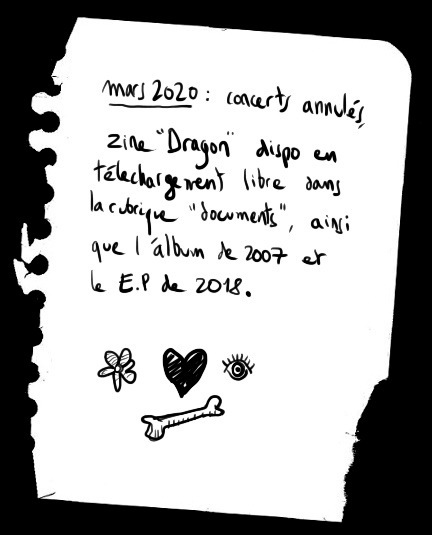 mars 2020 : concerts annulés,
zine "Dragon" dispo en
téléchargement libre dans
la rubrique "documents", ainsi
que l'álbum de 2007 et
le E.P de 2018.